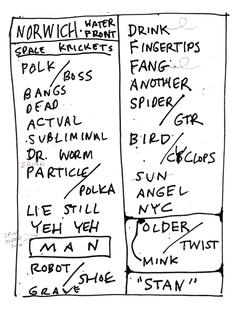 NORWICH · WATER
FRONT
SPACE KRICKETS
POLK /
BOSS
BANGS
DEAD
ACTUAL
SUBLIMINAL
DR. WORM
PARTICLE /
POLKA
LIE STILL
YEH YEH
MAN
ROBOT /
SHOE
GRAVE
DRINK
FINGERTIPS
FANG
ANOTHER
SPIDER /
GTR
BIRD /
CYCLOPS
SUN
ANGEL
NYC
OLDER /
TWIST
MINK
"STAN"